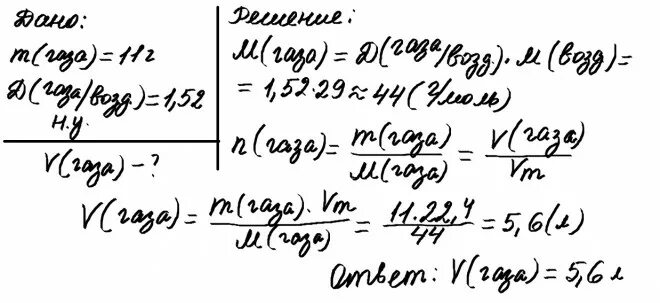 Дано:
m(газа)=11г
Д(газа/возд.)=1,52
н.у.
V(газа)-?
Решение:
M(газа)=Д(газа/возд)·M(возд)=
=1,52·29≈44(г/моль)
n(газа)=m(газа)/M(газа)=V(газа)/Vm
V(газа)=m(газа)·Vm/M(газа)=11·22,4/44=5,6(л)
Ответ: V(газа)=5,6л